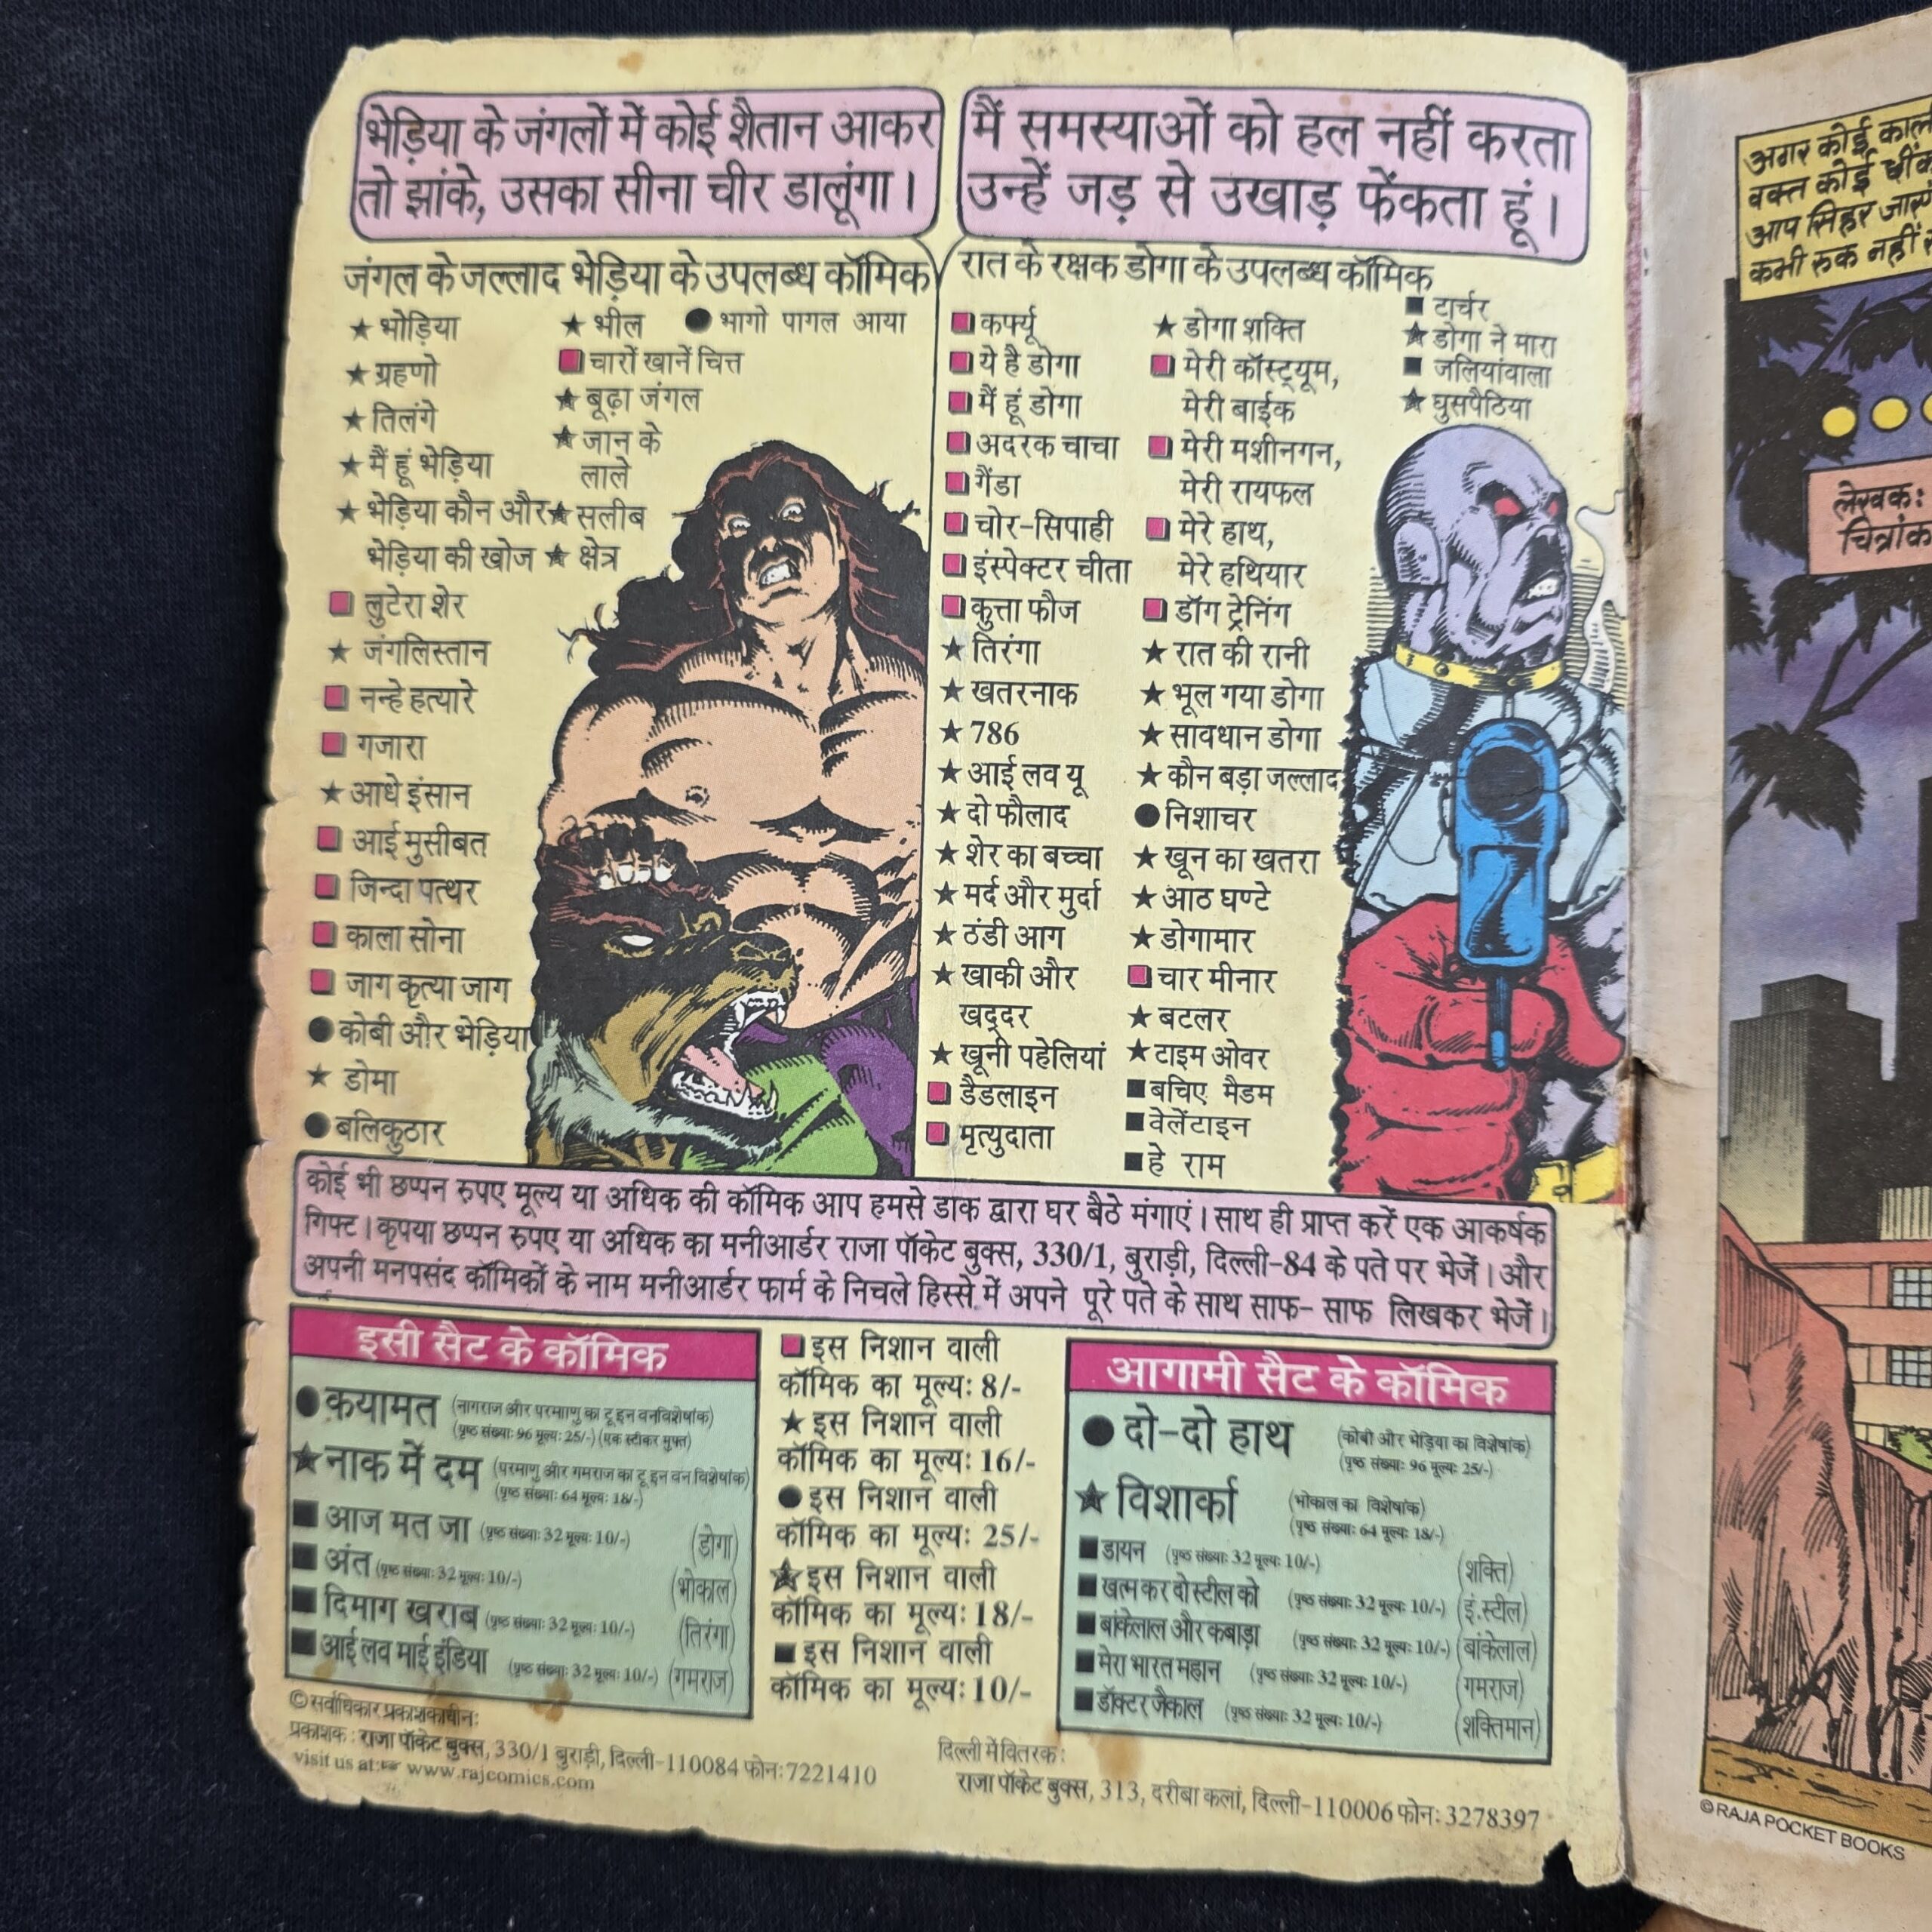 भेड़िया के जंगलों में कोई शैतान आकर
तो झांके, उसका सीना चीर डालूंगा।
जंगल के जल्लाद भेड़िया के उपलब्ध कॉमिक
★ भेड़िया
★ ग्रहणो
★ तिलंगे
★ मैं हूं भेड़िया
★ भेड़िया कौन और
भेड़िया की खोज
लुटेरा शेर
★ जंगलिस्तान
नन्हे हत्यारे
गजारा
★ आधे इंसान
आई मुसीबत
जिन्दा पत्थर
काला सोना
जाग कृत्या जाग
● कोबी और भेड़िया
★ डोमा
● बलिकुठार
★ भील
चारों खानें चित्त
★ बूढ़ा जंगल
★ जान के
लाले
★ सलीब
★ क्षेत्र
● भागो पागल आया
मैं समस्याओं को हल नहीं करता
उन्हें जड़ से उखाड़ फेंकता हूं।
रात के रक्षक डोगा के उपलब्ध कॉमिक
कर्फ्यू
ये है डोगा
मैं हूं डोगा
अदरक चाचा
गैंडा
चोर-सिपाही
इंस्पेक्टर चीता
कुत्ता फौज
★ तिरंगा
★ खतरनाक
★ 786
★ आई लव यू
★ दो फौलाद
★ शेर का बच्चा
★ मर्द और मुर्दा
★ ठंडी आग
★ खाकी और
खद्दर
★ खूनी पहेलियां
डैडलाइन
मृत्युदाता
★ डोगा शक्ति
मेरी कॉस्ट्यूम,
मेरी बाईक
मेरी मशीनगन,
मेरी रायफल
मेरे हाथ,
मेरे हथियार
डॉग ट्रेनिंग
★ रात की रानी
★ भूल गया डोगा
★ सावधान डोगा
★ कौन बड़ा जल्लाद
● निशाचर
★ खून का खतरा
★ आठ घण्टे
★ डोगामार
चार मीनार
★ बटलर
★ टाइम ओवर
■ बचिए मैडम
■ वेलेंटाइन
■ हे राम
■ टार्चर
★ डोगा ने मारा
■ जलियांवाला
★ घुसपैठिया
कोई भी छप्पन रुपए मूल्य या अधिक की कॉमिक आप हमसे डाक द्वारा घर बैठे मंगाएं। साथ ही प्राप्त करें एक आकर्षक
गिफ्ट। कृपया छप्पन रुपए या अधिक का मनीआर्डर राजा पॉकेट बुक्स, 330/1, बुराड़ी, दिल्ली-84 के पते पर भेजें। और
अपनी मनपसंद कॉमिकों के नाम मनीआर्डर फार्म के निचले हिस्से में अपने पूरे पते के साथ साफ- साफ लिखकर भेजें।
इसी सैट के कॉमिक
● कयामत (नागराज और परमाणु का टू इन वन विशेषांक)
(पृष्ठ संख्याः 96 मूल्यः 25/-) (एक स्टीकर मुफ्त)
★ नाक में दम (परमाणु और गमराज का टू इन वन विशेषांक)
(पृष्ठ संख्याः 64 मूल्यः 18/-)
■ आज मत जा (पृष्ठ संख्याः 32 मूल्यः 10/-) (डोगा)
■ अंत (पृष्ठ संख्याः 32 मूल्यः 10/-) (भोकाल)
■ दिमाग खराब (पृष्ठ संख्याः 32 मूल्यः 10/-) (तिरंगा)
■ आई लव माई इंडिया (पृष्ठ संख्याः 32 मूल्यः 10/-) (गमराज)
इस निशान वाली
कॉमिक का मूल्यः 8/-
★ इस निशान वाली
कॉमिक का मूल्यः 16/-
● इस निशान वाली
कॉमिक का मूल्यः 25/-
★ इस निशान वाली
कॉमिक का मूल्यः 18/-
■ इस निशान वाली
कॉमिक का मूल्यः 10/-
आगामी सैट के कॉमिक
● दो-दो हाथ (कोबी और भेड़िया का विशेषांक)
(पृष्ठ संख्याः 96 मूल्यः 25/-)
★ विशार्का (भोकाल का विशेषांक)
(पृष्ठ संख्याः 64 मूल्यः 18/-)
■ डायन (पृष्ठ संख्याः 32 मूल्यः 10/-) (शक्ति)
■ खत्म कर दो स्टील को (पृष्ठ संख्याः 32 मूल्यः 10/-) (इं.स्टील)
■ बांकेलाल और कबाड़ा (पृष्ठ संख्याः 32 मूल्यः 10/-) (बांकेलाल)
■ मेरा भारत महान (पृष्ठ संख्याः 32 मूल्यः 10/-) (गमराज)
■ डॉक्टर जैकाल (पृष्ठ संख्याः 32 मूल्यः 10/-) (शक्तिमान)
© सर्वाधिकार प्रकाशकाधीनः
प्रकाशक : राजा पॉकेट बुक्स, 330/1 बुराड़ी, दिल्ली-110084 फोनः 7221410
visit us at:☞ www.rajcomics.com
दिल्ली में वितरक :
राजा पॉकेट बुक्स, 313, दरीबा कलां, दिल्ली-110006 फोनः 3278397
अगर कोई
वक्त कोई
आप सिहर
कभी रुक नहीं
लेखक:
© RAJA POCKET BOOKS